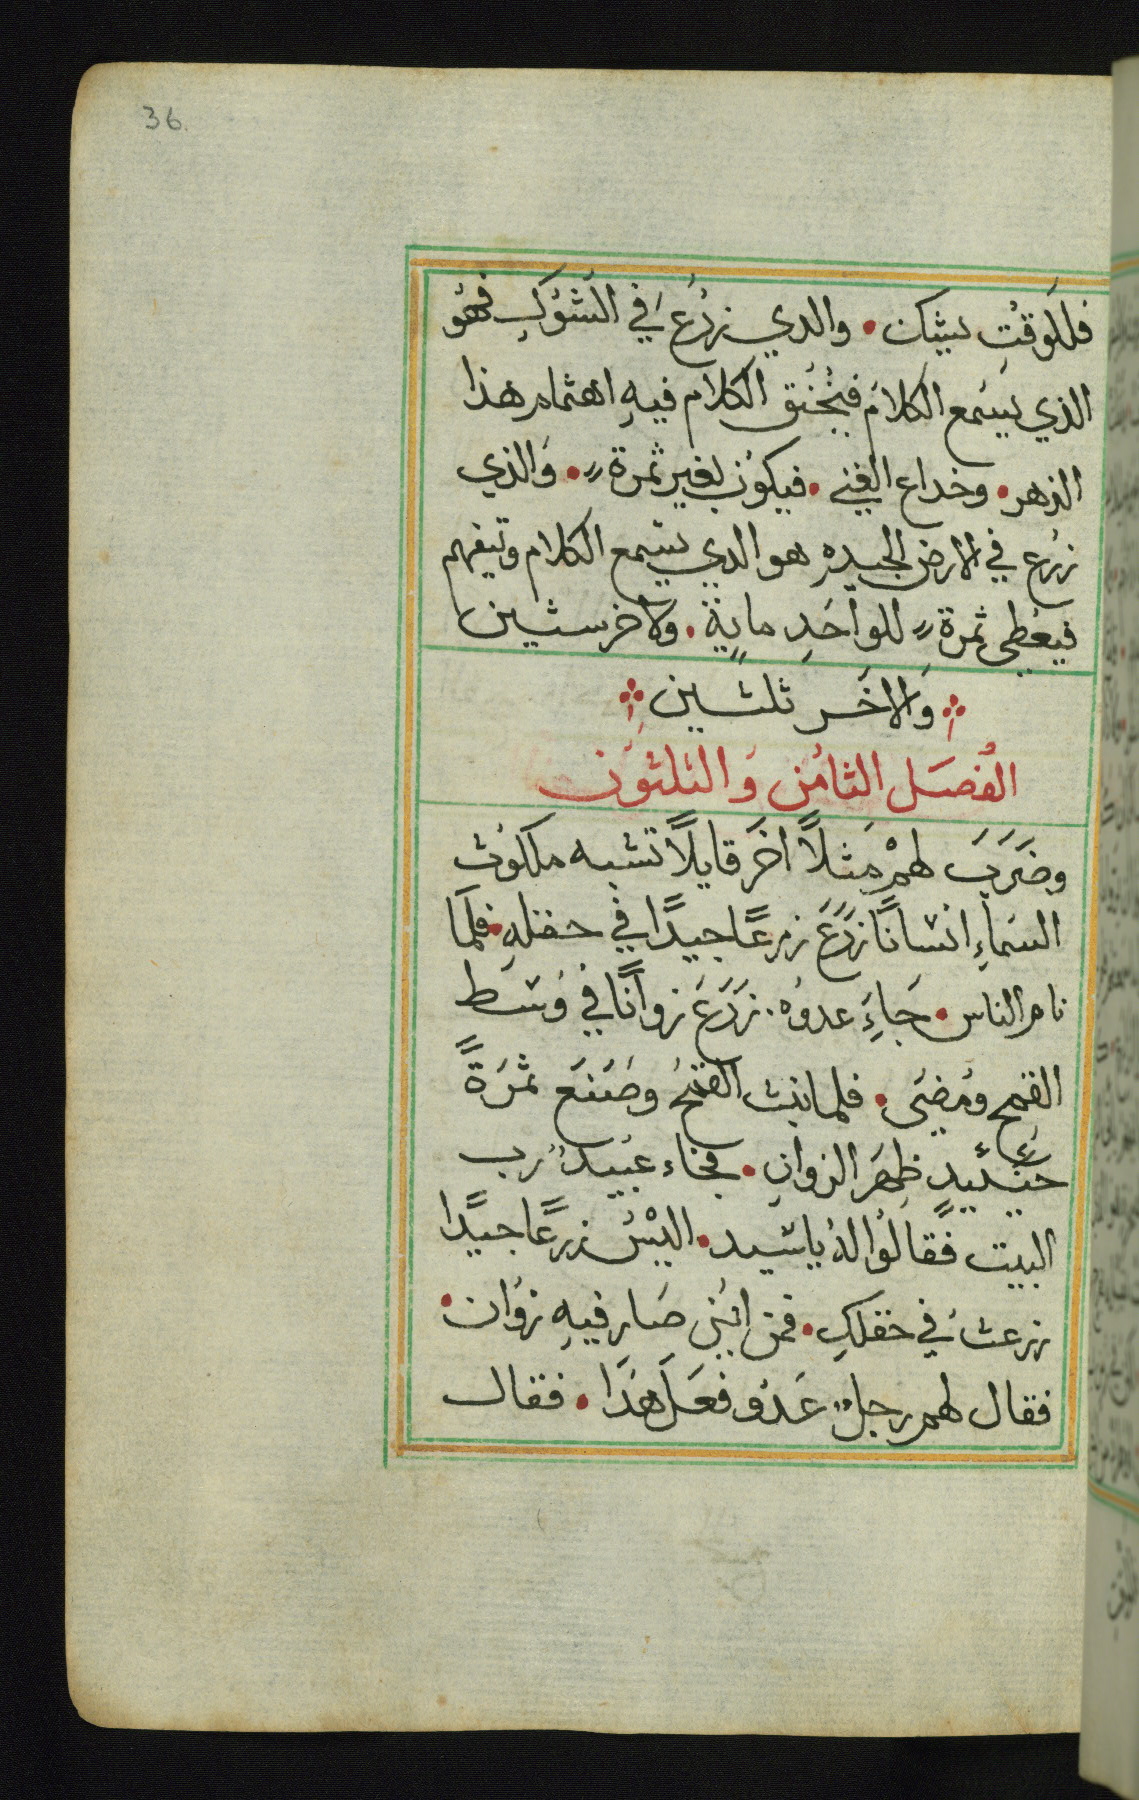 36
فللوقت يشك • والدي زرع في الشوك فهو
الذي يسمع الكلام فيخنق الكلام فيه اهتمام هذا
الدهر • وخداع الغني • فيكون بغير ثمرة • والذي
زرع في الارض الجيده هو الدي يسمع الكلام ويتفهم
فيعطي ثمرة للواحد ماية • ولاخر ستين
والاخر ثلثين
الفصل الثامن والثلثون
وضرب لهم مثلاً اخر قايلاً تشبه ملكوت
السماء انسانًا زرع زرعًا جيدًا في حقله • فلما
نام الناس • جاء عدوه • زرع زوانًا في وسط
القمح ومضى • فلما نبت القمح وصنع ثمرةً
حينئيد ظهر الزوان • فجاء عبيد رب
البيت فقالوا له ياسيد • اليس زرعًا جيدًا
زرعت في حقلك • فمن اين صار فيه زوان •
فقال لهم رجل عدو فعل هدا • فقال